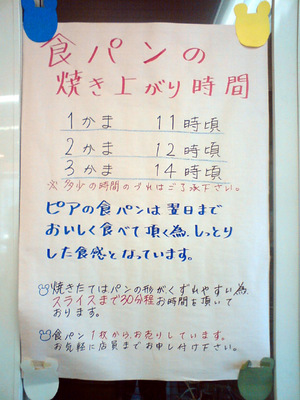 食パンの
焼き上がり時間
1かま 11時頃
2かま 12時頃
3かま 14時頃
※多少の時間のづれはご了承下さい。
ピアの食パンは翌日まで
おいしく食べて頂く為、しっとり
した食感となっています。
焼きたてはパンの形がくずれやすい為、
スライスまで30分程お時間を頂いて
おります。
食パン1枚からお売りしています。
お気軽に店員までお申し付け下さい。